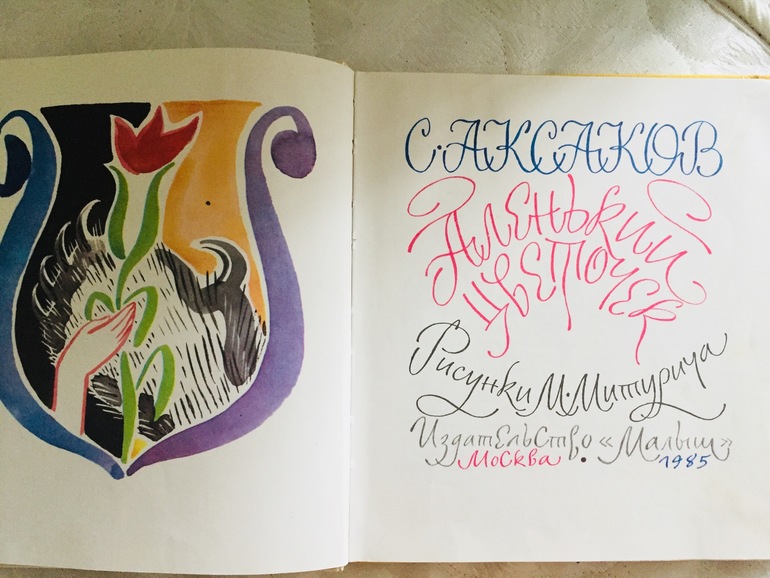 С. АКСАКОВ
Аленький
цветочек
Рисунки М. Митурича
Издательство «Малыш»
Москва • 1985